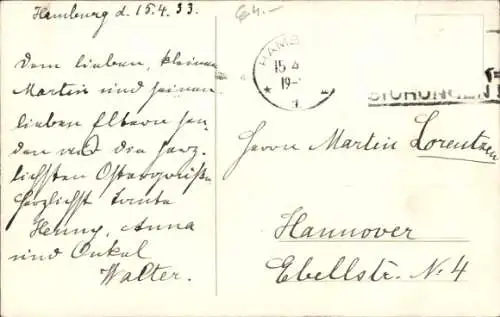 Hamburg d. 15.4.33.
64.-
Dem lieben, kleinen
Martin und seinen
lieben Eltern sen-
den wir die herz-
lichsten Ostergrüße
Herzlichst Tante
Henny, Anna
und Onkel
Walter.
HAMB
15.4
19-
SICHERUNGEN
Herrn Martin Lorentzen
Hannover
Ebellstr. N. 4